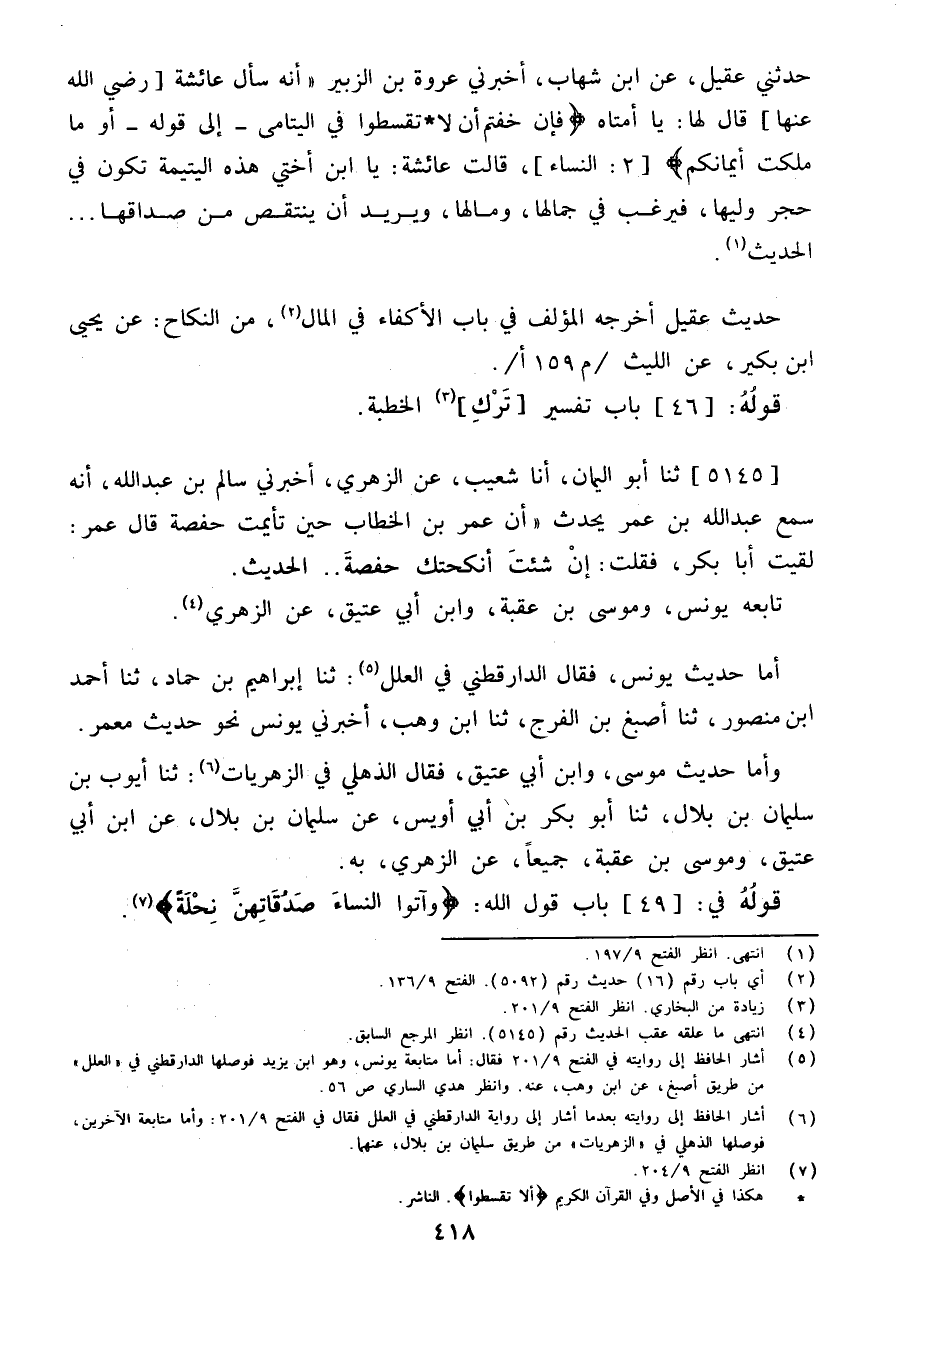 حدثني عقيل، عن ابن شهاب، أخبرني عروة بن الزبير « أنه سأل عائشة [ رضي الله
عنها ] قال لها: يا أمتاه ﴿فإن خفتم أن لا*تقسطوا في اليتامى – إلى قوله – أو ما
ملكت أيمانكم﴾ [ ٢ : النساء ]، قالت عائشة: يا ابن أختي هذه اليتيمة تكون في
حجر وليها، فيرغب في جمالها، ومالها، ويريد أن ينتقص من صداقها...
الحديث(١).
حديث عقيل أخرجه المؤلف في باب الأكفاء في المال(٢)، من النكاح: عن يحيى
ابن بكير، عن الليث /م ١٥٩ أ/.
قولُهُ: [ ٤٦ ] باب تفسير [ تَرْكِ ](٣) الخطبة.
[ ٥١٤٥ ] ثنا أبو اليمان، أنا شعيب، عن الزهري، أخبرني سالم بن عبدالله، أنه
سمع عبدالله بن عمر يحدث « أن عمر بن الخطاب حين تأيمت حفصة قال عمر:
لقيت أبا بكر، فقلت: إنْ شئتَ أنكحتك حفصةَ.. الحديث.
تابعه يونس، وموسى بن عقبة، وابن أبي عتيق، عن الزهري(٤).
أما حديث يونس، فقال الدارقطني في العلل(٥): ثنا إبراهيم بن حماد، ثنا أحمد
ابن منصور، ثنا أصبغ بن الفرج، ثنا ابن وهب، أخبرني يونس نحو حديث معمر.
وأما حديث موسى، وابن أبي عتيق، فقال الذهلي في الزهريات(٦): ثنا أيوب بن
سليمان بن بلال، ثنا أبو بكر بن أبي أويس، عن سليمان بن بلال، عن ابن أبي
عتيق، وموسى بن عقبة، جميعاً، عن الزهري، به.
قولُهُ في: [ ٤٩ ] باب قول الله: ﴿وآتوا النساءَ صَدُقَاتِهنَّ نِحْلَةً﴾(٧).
(١) انتهى. انظر الفتح ١٩٧/٩.
(٢) أي باب رقم (١٦) حديث رقم (٥٠٩٢). الفتح ١٣٦/٩.
(٣) زيادة من البخاري. انظر الفتح ٢٠١/٩.
(٤) انتهى ما علقه عقب الحديث رقم (٥١٤٥). انظر المرجع السابق.
(٥) أشار الحافظ إلى روايته في الفتح ٢٠١/٩ فقال: أما متابعة يونس، وهو ابن يزيد فوصلها الدارقطني في «العلل»
من طريق أصبغ، عن ابن وهب، عنه. وانظر هدي الساري ص ٥٦.
(٦) أشار الحافظ إلى روايته بعدما أشار إلى رواية الدارقطني في العلل فقال في الفتح ٢٠١/٩: وأما متابعة الآخرين،
فوصلها الذهلي في «الزهريات» من طريق سليمان بن بلال، عنهما.
(٧) انظر الفتح ٢٠٤/٩.
* هكذا في الأصل وفي القرآن الكريم ﴿ألا تقسطوا﴾. الناشر.
٤١٨